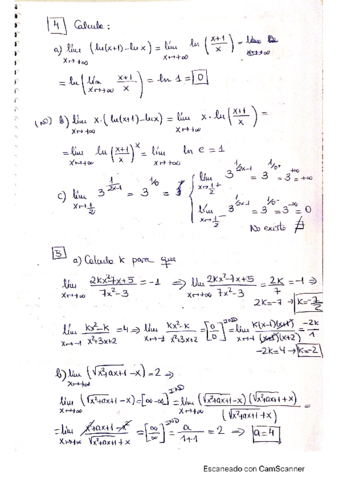 4 Calcula:
a) lím x→+∞ (ln(x+1)-lnx) = lím x→+∞ ln (x+1/x) =
= ln(lím x→+∞ x+1/x) = ln 1 = 0
b) lím x→+∞ x·(ln(x+1)-lnx) = lím x→+∞ x·ln(x+1/x) =
= lím x→+∞ ln(x+1/x)^x = lím x→+∞ ln e = 1
c) lím x→1/2 3^(1/2x-1) = 3^(1/0) =
lím x→1/2+ 3^(1/2x-1) = 3^(1/0+) = 3^(+∞) = +∞
lím x→1/2- 3^(1/2x-1) = 3^(1/0-) = 3^(-∞) = 0
No existe ∄
5
a) Calcula K para que
lím x→+∞ 2Kx²-7x+5/7x²-3 = -1 ⇒ lím x→+∞ 2Kx²-7x+5/7x²-3 = 2K/7 = -1 ⇒
2K=-7 → K=-7/2
lím x→-1 Kx²-K/x²+3x+2 = 4 → lím x→-1 Kx²-K/x²+3x+2 = [0/0] IND = lím x→-1 K(x-1)(x+1)/(x+1)(x+2) = -2K/1
-2K=4 → K=-2
b) lím x→+∞ (√x²+ax+1 -x) = 2 ⇒
lím x→+∞ (√x²+ax+1 -x) = [∞-∞] IND = lím x→+∞ (√x²+ax+1 -x)(√x²+ax+1 +x)/(√x²+ax+1 +x) =
= lím x→+∞ x²+ax+1-x²/√x²+ax+1 +x = [∞/∞] IND = a/1+1 = 2 ⇒ a=4
Escaneado con CamScanner